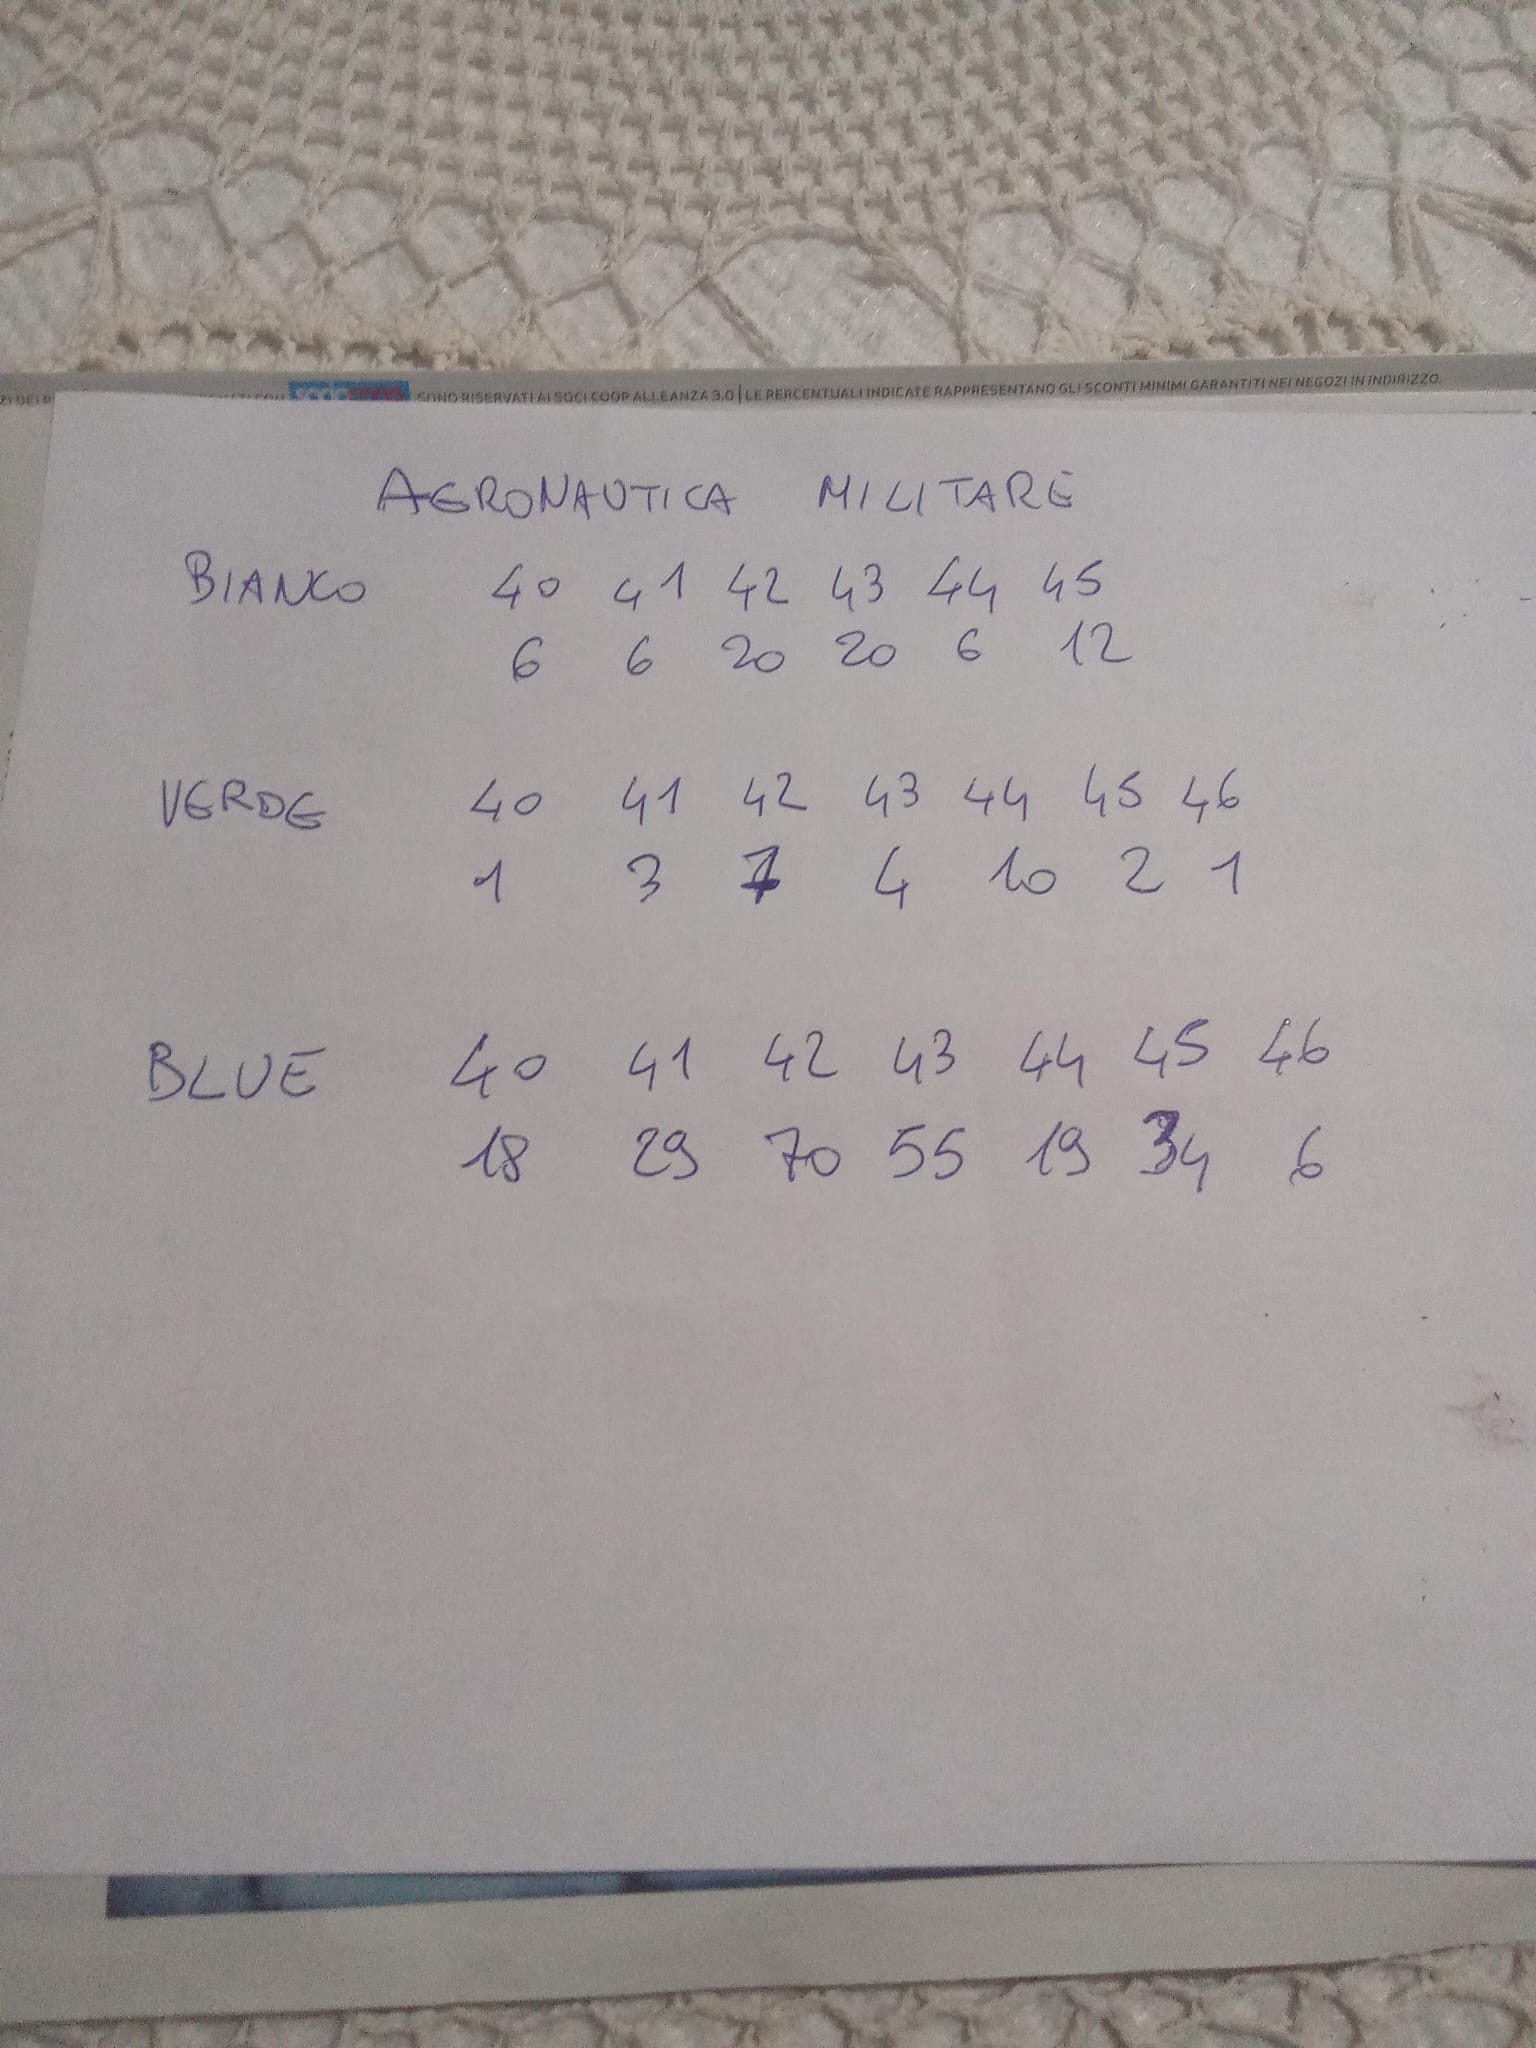 SONO RISERVATI AI SOCI COOP ALLEANZA 3.0 | LE PERCENTUALI INDICATE RAPPRESENTANO GLI SCONTI MINIMI GARANTITI NEI NEGOZI IN INDIRIZZO.
AERONAUTICA MILITARE
BIANCO 40 41 42 43 44 45
6 6 20 20 6 12
VERDE 40 41 42 43 44 45 46
1 3 7 4 10 2 1
BLUE 40 41 42 43 44 45 46
18 29 70 55 19 34 6